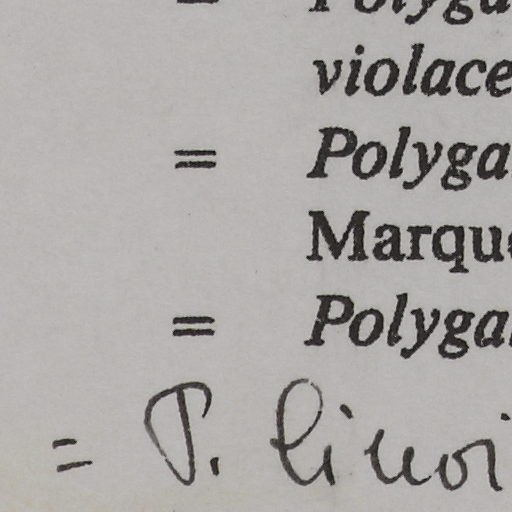 = Polyga
violace
= Polyga
Marque
= Polyga
= P. linoi